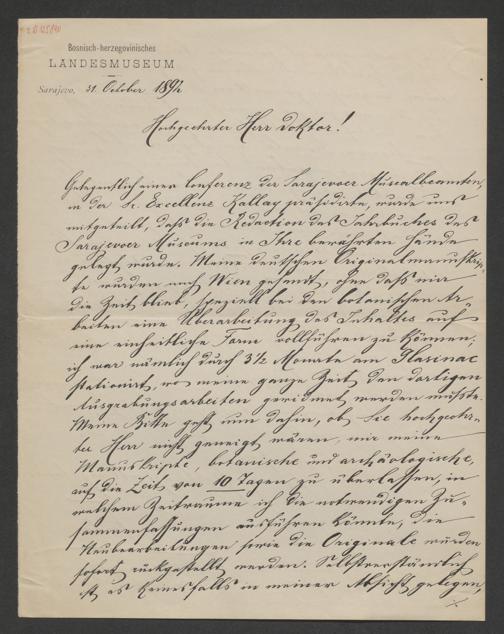 Bosnisch-herzegovinisches
LANDESMUSEUM
Sarajevo, 31. October 1892
Hochgeehrter Herr Doktor!
Gelegentlich einer Conferenz der Sarajevoer Musealbeamten,
in der Sr. Excellenz Kallay präsidirte, wurde uns
mitgeteilt, dass die Redaction des Jahrbuches des
Sarajevoer Museums in Ihre bewährten Hände
gelegt wurde. Meine deutschen Originalmanuskrip-
te wurden nach Wien gesandt, ohne dass mir
die Zeit blieb, speziell bei den botanischen Ar-
beiten eine Überarbeitung des Inhaltes auf
eine einheitliche Form vollführen zu können;
ich war nämlich durch 3½ Monate am Glasinac
stationirt, wo meine ganze Zeit den dortigen
Ausgrabungsarbeiten gewidmet werden müsste.
Meine Bitte geht nun dahin, ob Sie hochgeehr-
ter Herr nicht geneigt wären, mir meine
Manuskripte, botanische und archäologische,
auf die Zeit von 10 Tagen zu überlassen, in
welchem Zeitraume ich die notwendigen Zu-
sammenfassungen ausführen könnte, die
Neubearbeitungen sowie die Originale würden
sofort rückgestellt werden. Selbstverständlich
ist es keinesfalls in meiner Absicht gelegen,